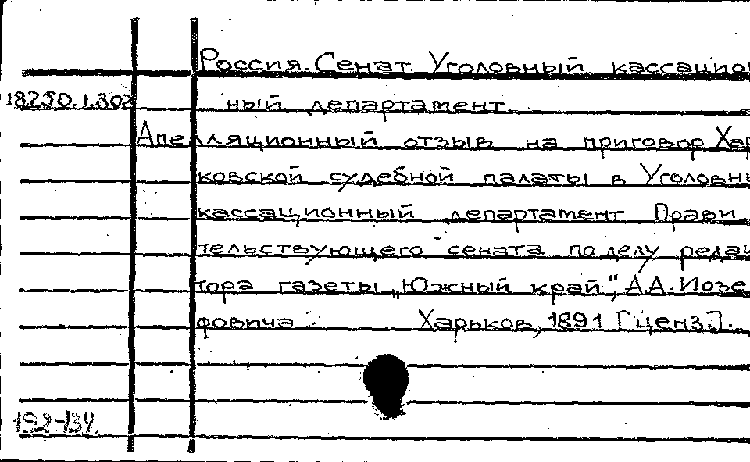 Россия. Сенат. Уголовный кассацион
18250.1.302 ный департамент.
Апелляционный отзыв на приговор Хар
ковской судебной палаты в Уголовны
кассационный департамент Прави
тельствующего сената по делу редак
тора газеты „Южный край", А.А. Иозе
фовича. Харьков, 1891 [ценз.].